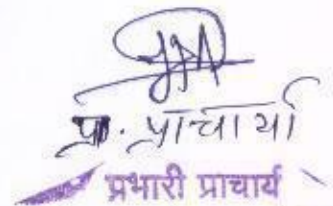 प्र. प्राचार्या
प्रभारी प्राचार्य